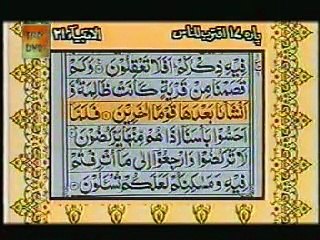 پاره ۱۷ اقترب للناس
الانبيآء ۲۱
فِيهِ ذِكْرُكُمْ أَفَلَا تَعْقِلُونَ ۝ وَكَمْ
قَصَمْنَا مِنْ قَرْيَةٍ كَانَتْ ظَالِمَةً وَّ
اَنْشَاْنَا بَعْدَهَا قَوْمًا اٰخَرِيْنَ ۝ فَلَمَّآ
اَحَسُّوْا بَاْسَنَآ اِذَا هُمْ مِّنْهَا يَرْكُضُوْنَ ۝
لَا تَرْكُضُوْا وَارْجِعُوْٓا اِلٰى مَآ اُتْرِفْتُمْ
فِيْهِ وَمَسٰكِنِكُمْ لَعَلَّكُمْ تُسْـَٔلُوْنَ ۝